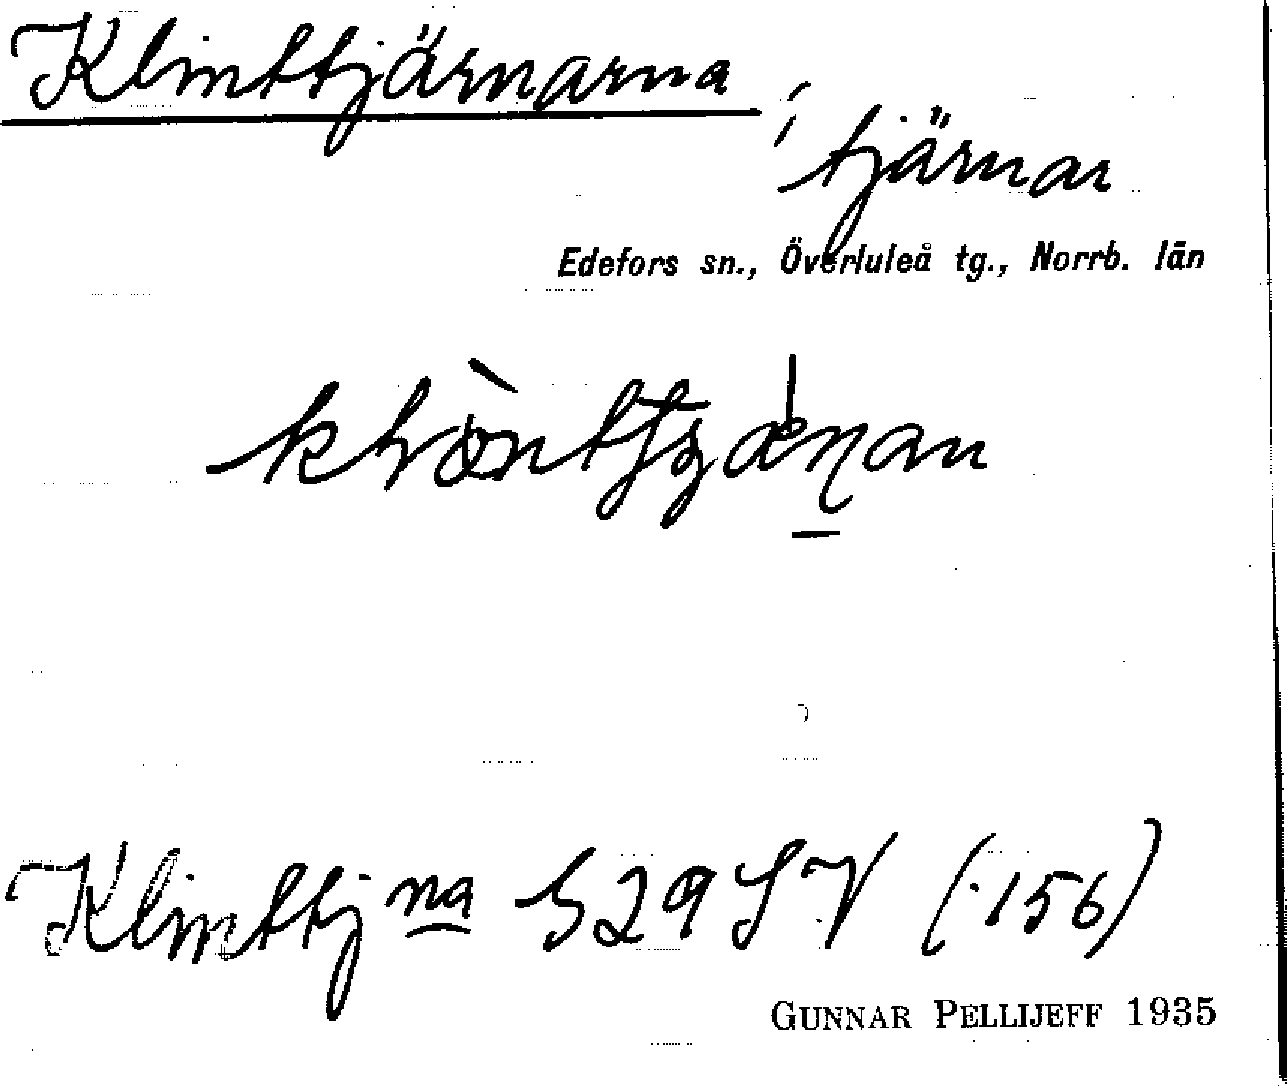 Klinttjärnarna,
tjärnar
Edefors sn., Överluleå tg., Norrb. län
Klinttj na S29SV (156)
GUNNAR PELLIJEFF 1935